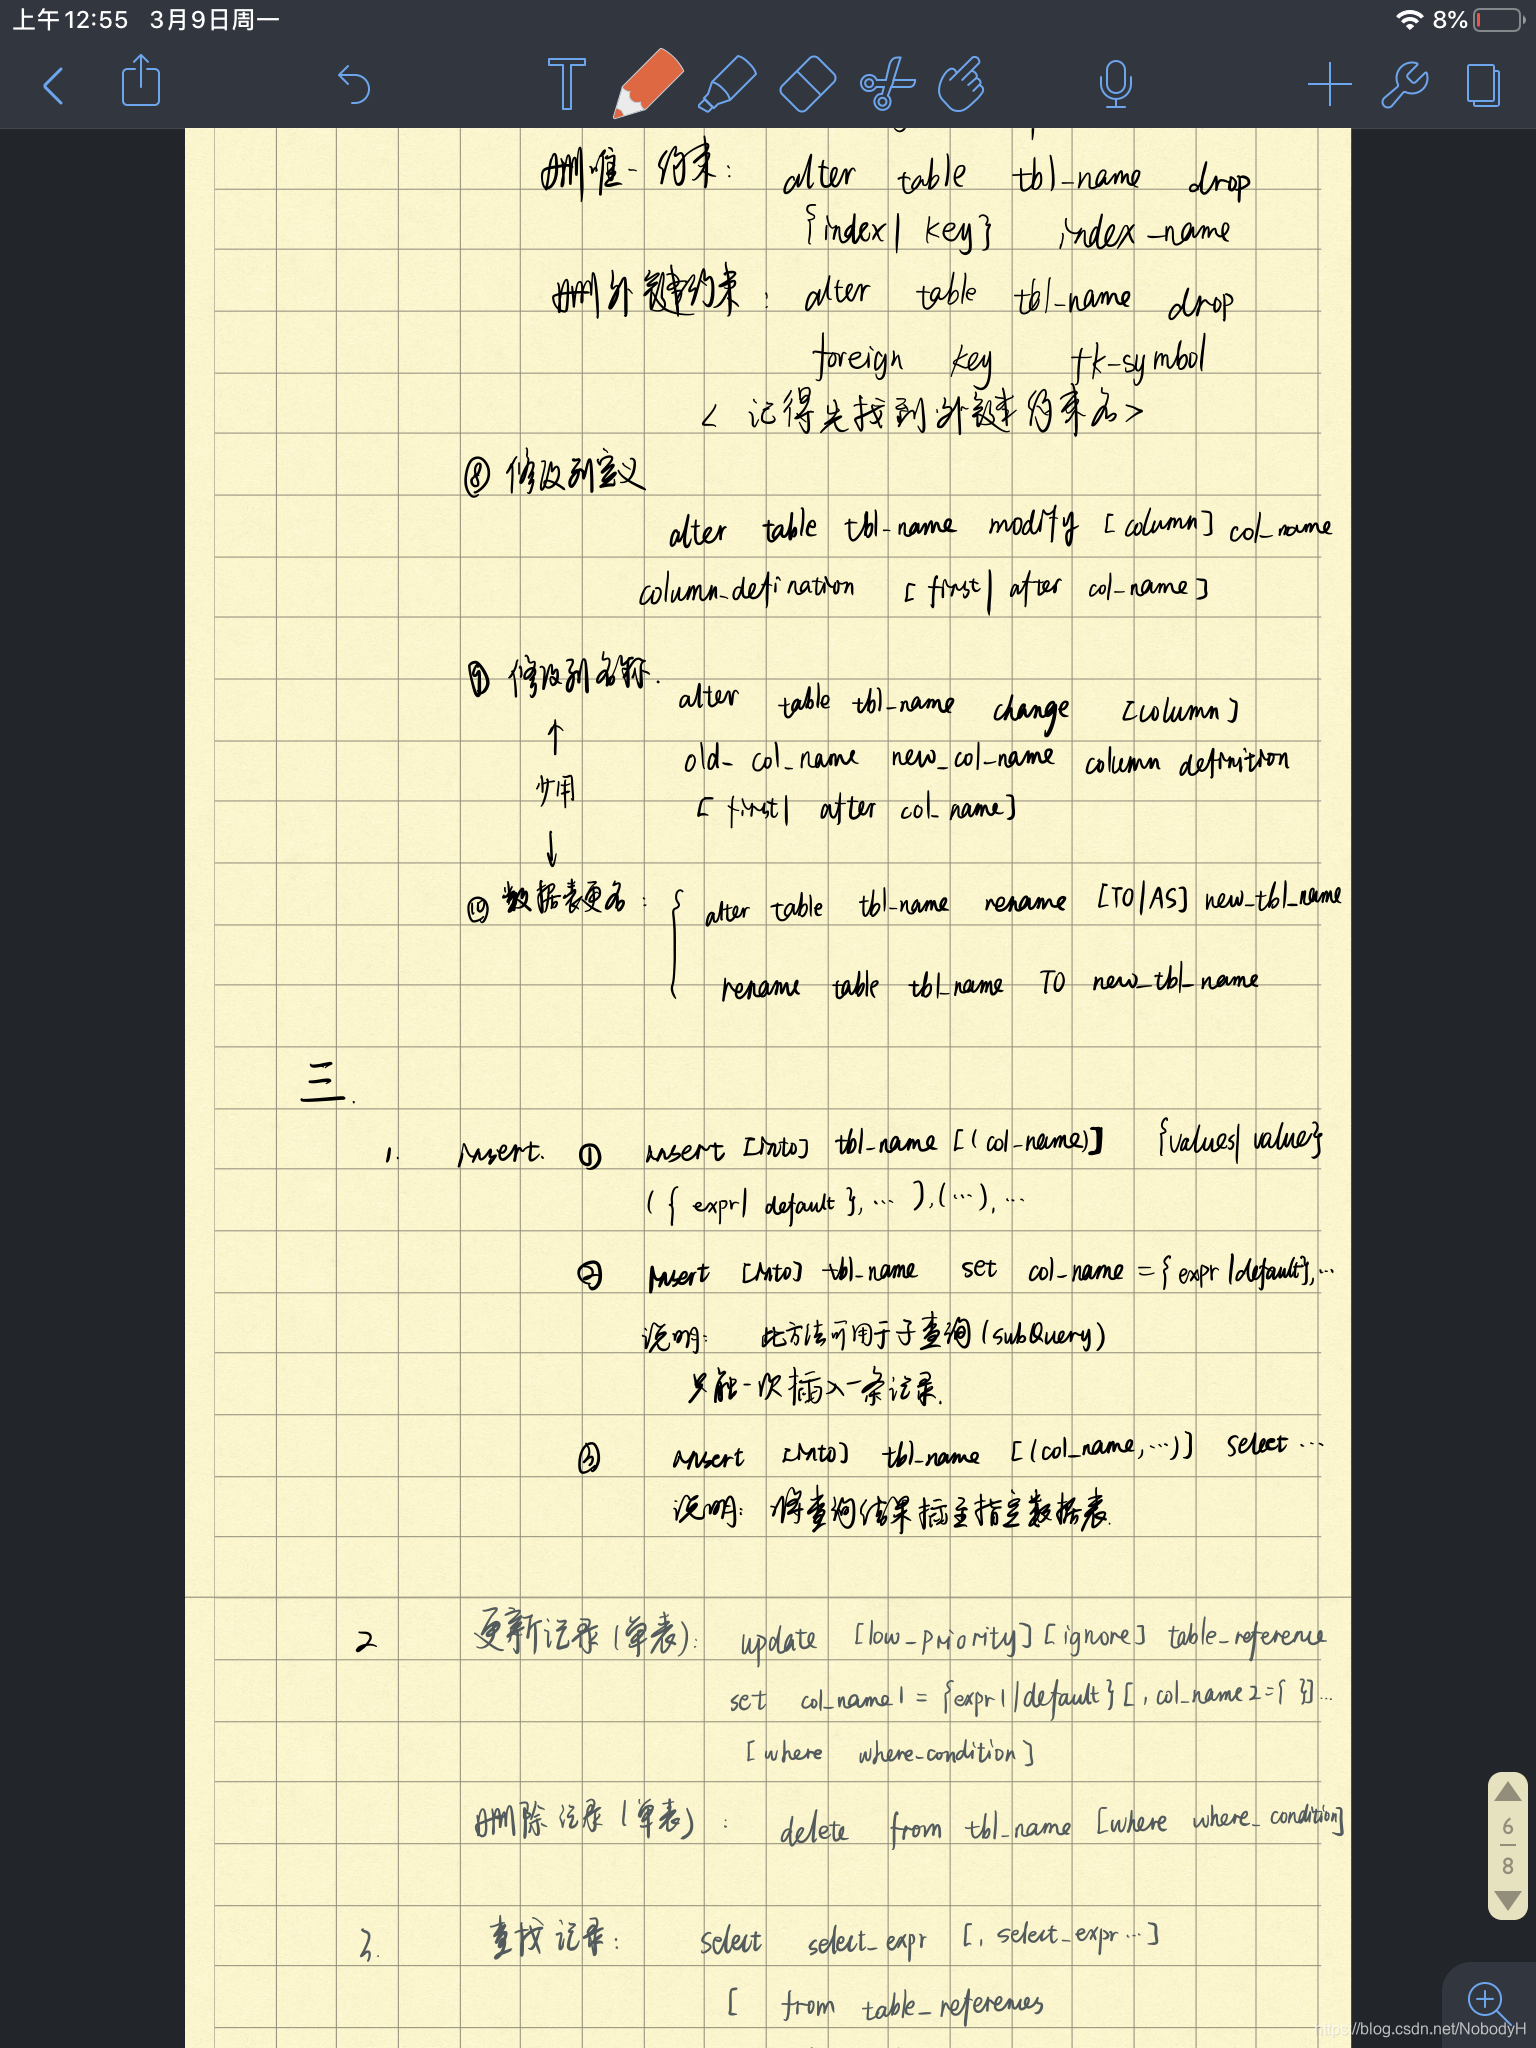 上午12:55 3月9日周一
8%
删唯一约束: alter table tbl_name drop
{index| key} index_name
删外键约束: alter table tbl_name drop
foreign key fk-symbol
< 记得先找到外键约束名>
⑧ 修改列定义
alter table tbl_name modify [column] col_name
column_defination [first| after col_name]
⑨ 修改列名称.
alter table tbl_name change [column]
↑
old_ col_name new_col_name column definition
少用
[first| after col_name]
↓
⑩ 数据表更名: { alter table tbl_name rename [TO|AS] new_tbl_name
rename table tbl_name TO new_tbl_name
三.
1. insert. ① insert [into] tbl_name [(col_name)] {values| value}
({expr| default},…),(…),…
② insert [into] tbl_name set col_name={expr|default},…
说明: 此方法可用于子查询(subQuery)
只能一次插入一条记录.
③ insert [into] tbl_name [(col_name,…)] select …
说明: 将查询结果插至指定数据表.
2 更新记录(单表): update [low_priority][ignore] table_reference
set col_name1={expr1|default}[,col_name2={ }]…
[where where-condition]
删除记录(单表): delete from tbl_name [where where_condition]
3. 查找记录: select select_expr [, select_expr…]
[ from table_references
6
8
https://blog.csdn.net/NobodyH